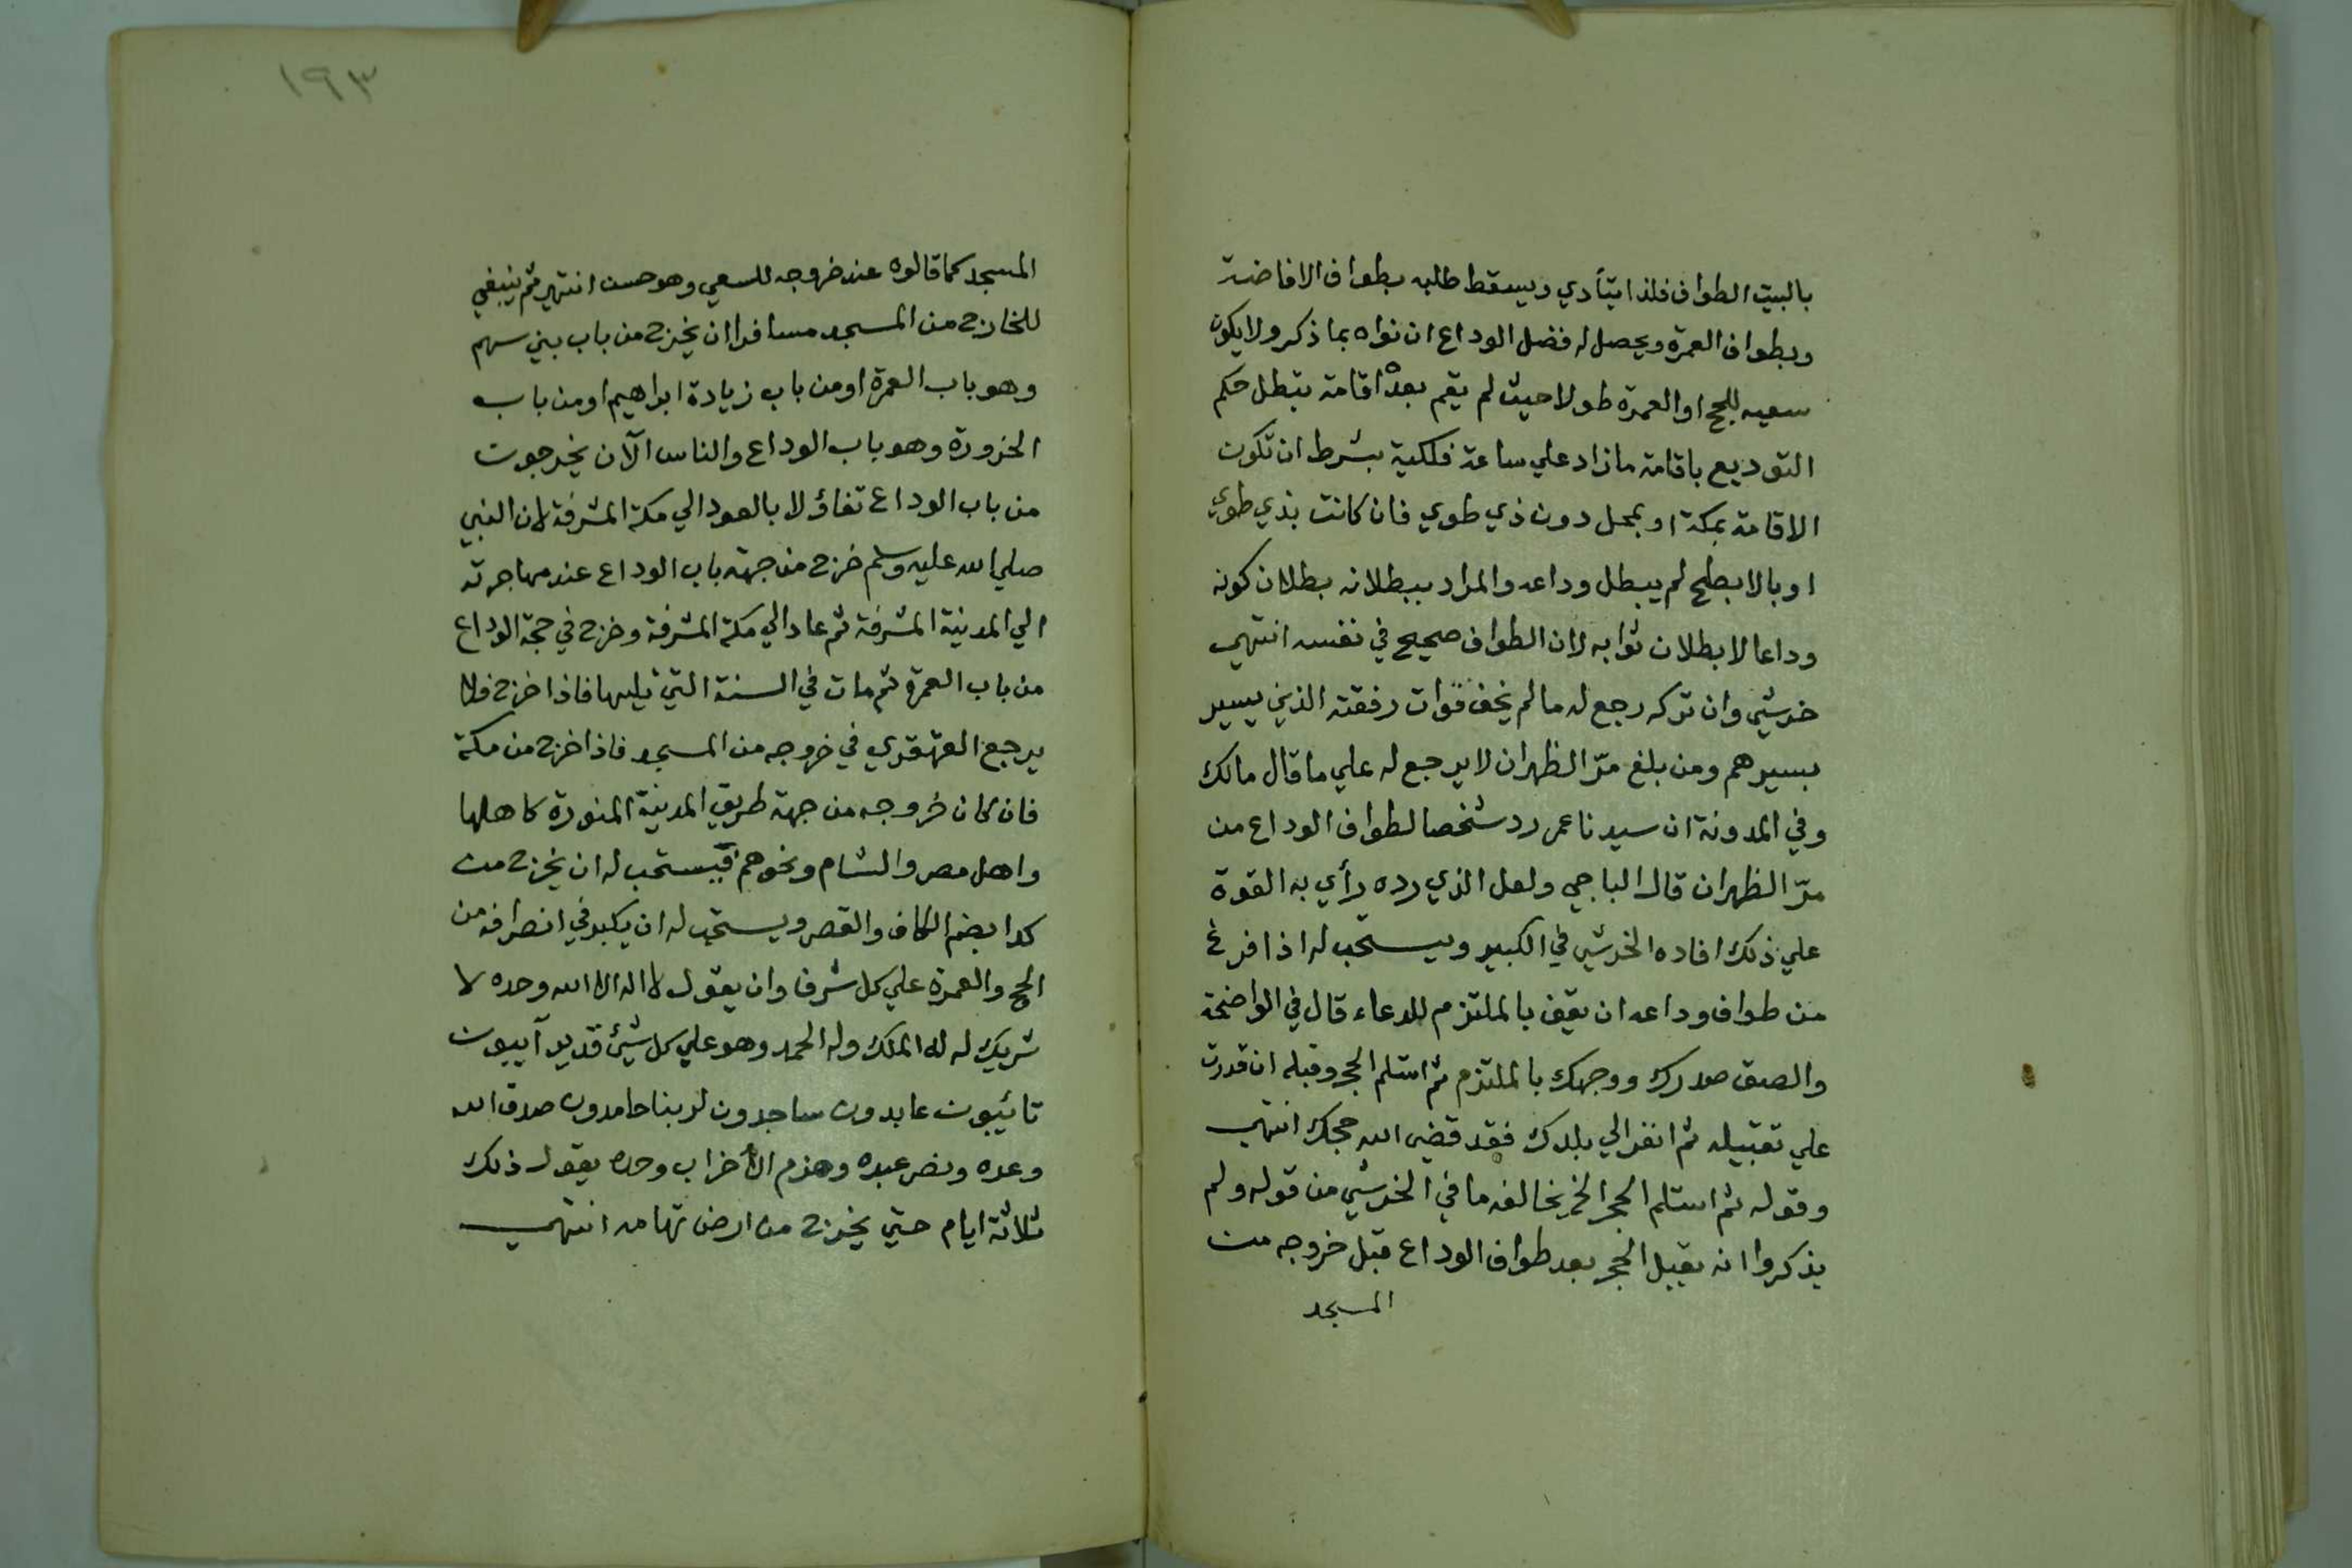 بالبيت الطواف فلذا يتأدي ويسقط طلبه بطواف الافاضة
وبطواف العمرة ويحصل له فضل الوداع ان نواه بما ذكر ولا يكون
سعيه للحج او العمرة طولا حيث لم يقم بعده اقامة يبطل حكم
التوديع باقامة مازاد علي ساعة فلكية بشرط ان تكون
الاقامة بمكة او بمحل دون ذي طوي فان كانت بذي طوي
او بالابطح لم يبطل وداعه والمراد ببطلانه بطلان كونه
وداعا لا بطلان ثوابه لان الطواف صحيح في نفسه انتهي
خرشي وان تركه رجع له مالم يخف فوات رفقته الذين يسير
بسيرهم ومن بلغ مرّ الظهران لا يرجع له علي ما قال مالك
وفي المدونة ان سيدنا عمر رد شخصا لطواف الوداع من
مرّ الظهران قال الباجي ولعل الذي رده رأي به القوة
علي ذلك افاده الخرشي في الكبير ويستحب له اذا فرغ
من طواف وداعه ان يقف بالملتزم للدعاء قال في الواضحة
والصق صدرك ووجهك بالملتزم ثم استلم الحجر وقبله ان قدرت
علي تقبيله ثم انفر الي بلدك فقد قضي الله حجك انتهي
وقوله ثم استلم الحجر الخ يخالفه ما في الخرشي من قوله ولم
يذكروا انه يقبل الحجر بعد طواف الوداع قبل خروجه من
المسجد
١٩٣
المسجد كما قالوه عند خروجه للسعي وهو حسن انتهي ثم ينبغي
للخارج من المسجد مسافرا ان يخرج من باب بني سهم
وهو باب العمرة او من باب زيادة ابراهيم او من باب
الحزورة وهو باب الوداع والناس الآن يخرجون
من باب الوداع تفاؤلا بالعود الي مكة المشرفة لان النبي
صلي الله عليه وسلم خرج من جهة باب الوداع عند مهاجرته
الي المدينة المشرفة ثم عاد الي مكة المشرفة وخرج في حجة الوداع
من باب العمرة ثم مات في السنة التي تليها فاذا خرج فلا
يرجع القهقري في خروجه من المسجد فاذا خرج من مكة
فان كان خروجه من جهة طريق المدينة المنورة كاهلها
واهل مصر والشام ونحوهم فيستحب له ان يخرج من
كدا بضم الكاف والقصر ويستحب له ان يكبر في انصرافه من
الحج والعمرة علي كل شرف وان يقول لا اله الا الله وحده لا
شريك له له الملك وله الحمد وهو علي كل شيئ قدير آيبون
تائيبون عابدون ساجدون لربنا حامدون صدق الله
وعده ونصر عبده وهزم الأحزاب وحده يقول ذلك
ثلاثة ايام حتي يخرج من ارض تهامه انتهي